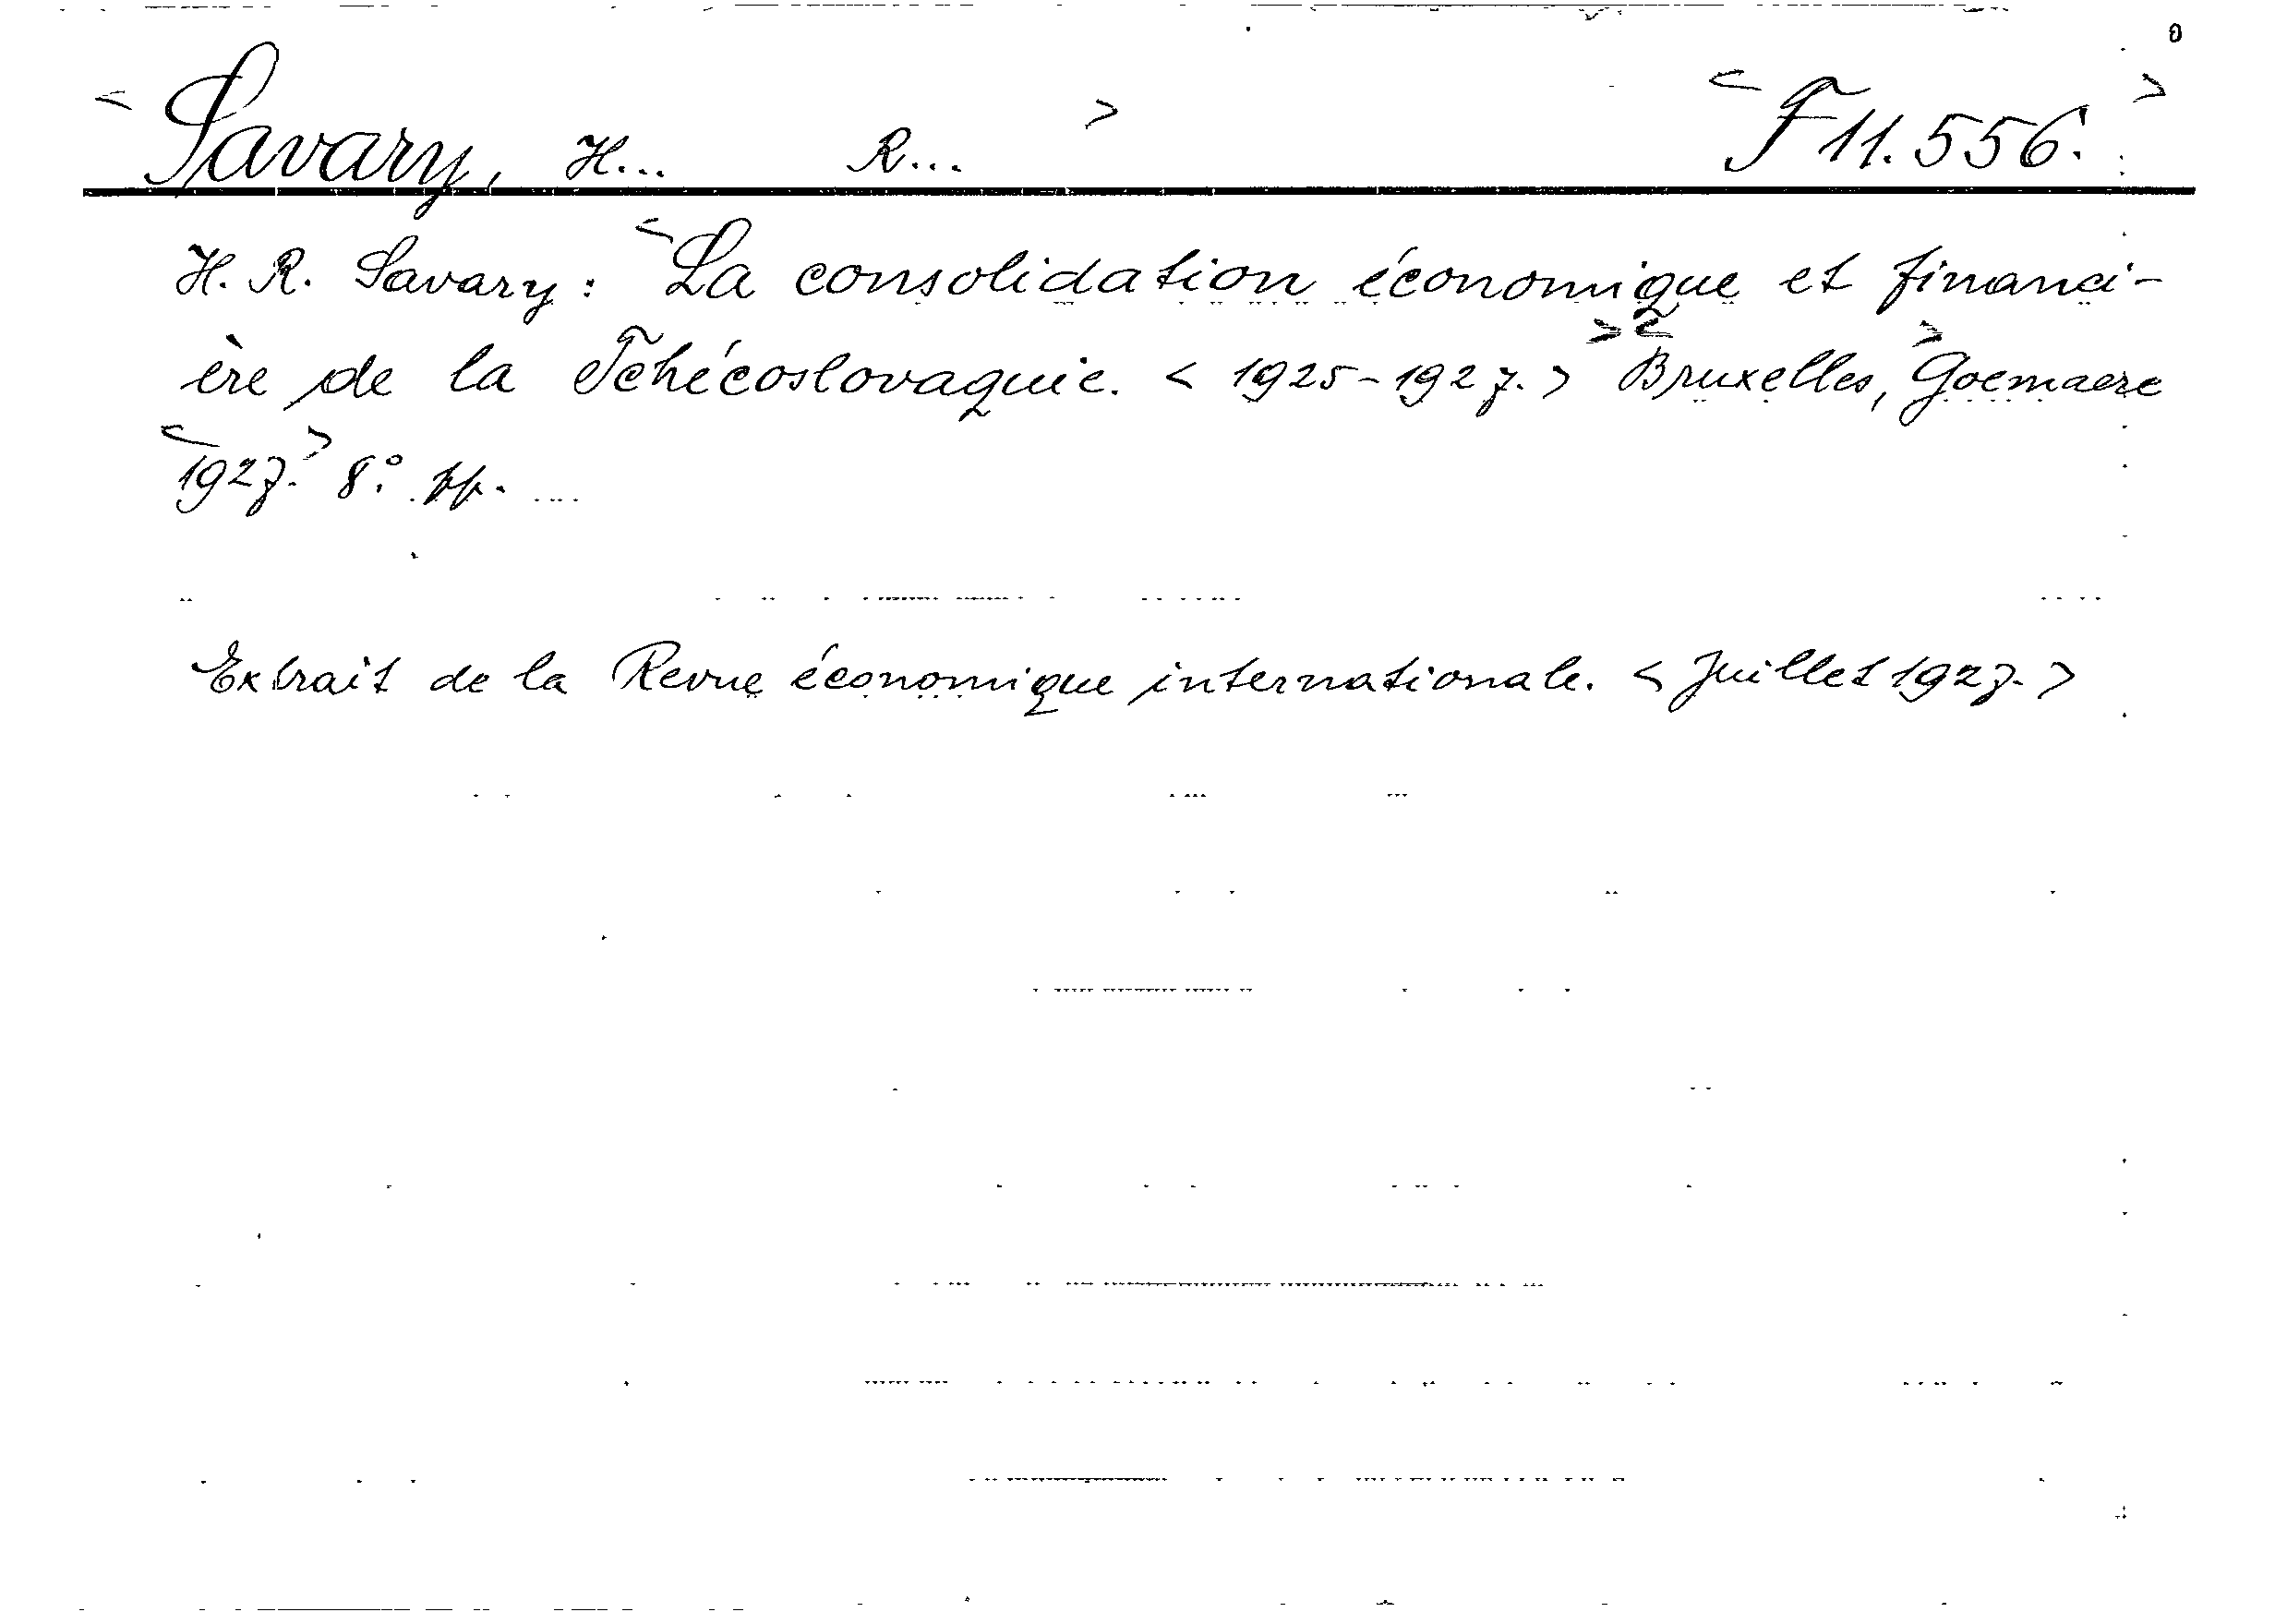 < Savary, H... R... > < F 11.556. >
H. R. Savary: < La consolidation économique et financi-
ère de la Tchécoslovaquie. < 1925-1927. > > < Bruxelles, > Goemaere
< 1927. > 8°. pp. ...
Extrait de la Revue économique internationale. < Juillet 1927. >